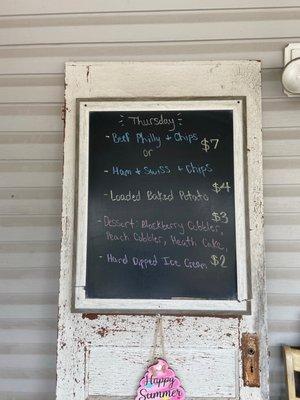 Thursday
- Beef Philly + Chips $7
or
- Ham + Swiss + Chips
- Loaded Baked Potato $4
- Dessert: Blackberry Cobbler, $3
Peach Cobbler, Heath Cake,
- Hard Dipped Ice Cream $2
Happy
Summer